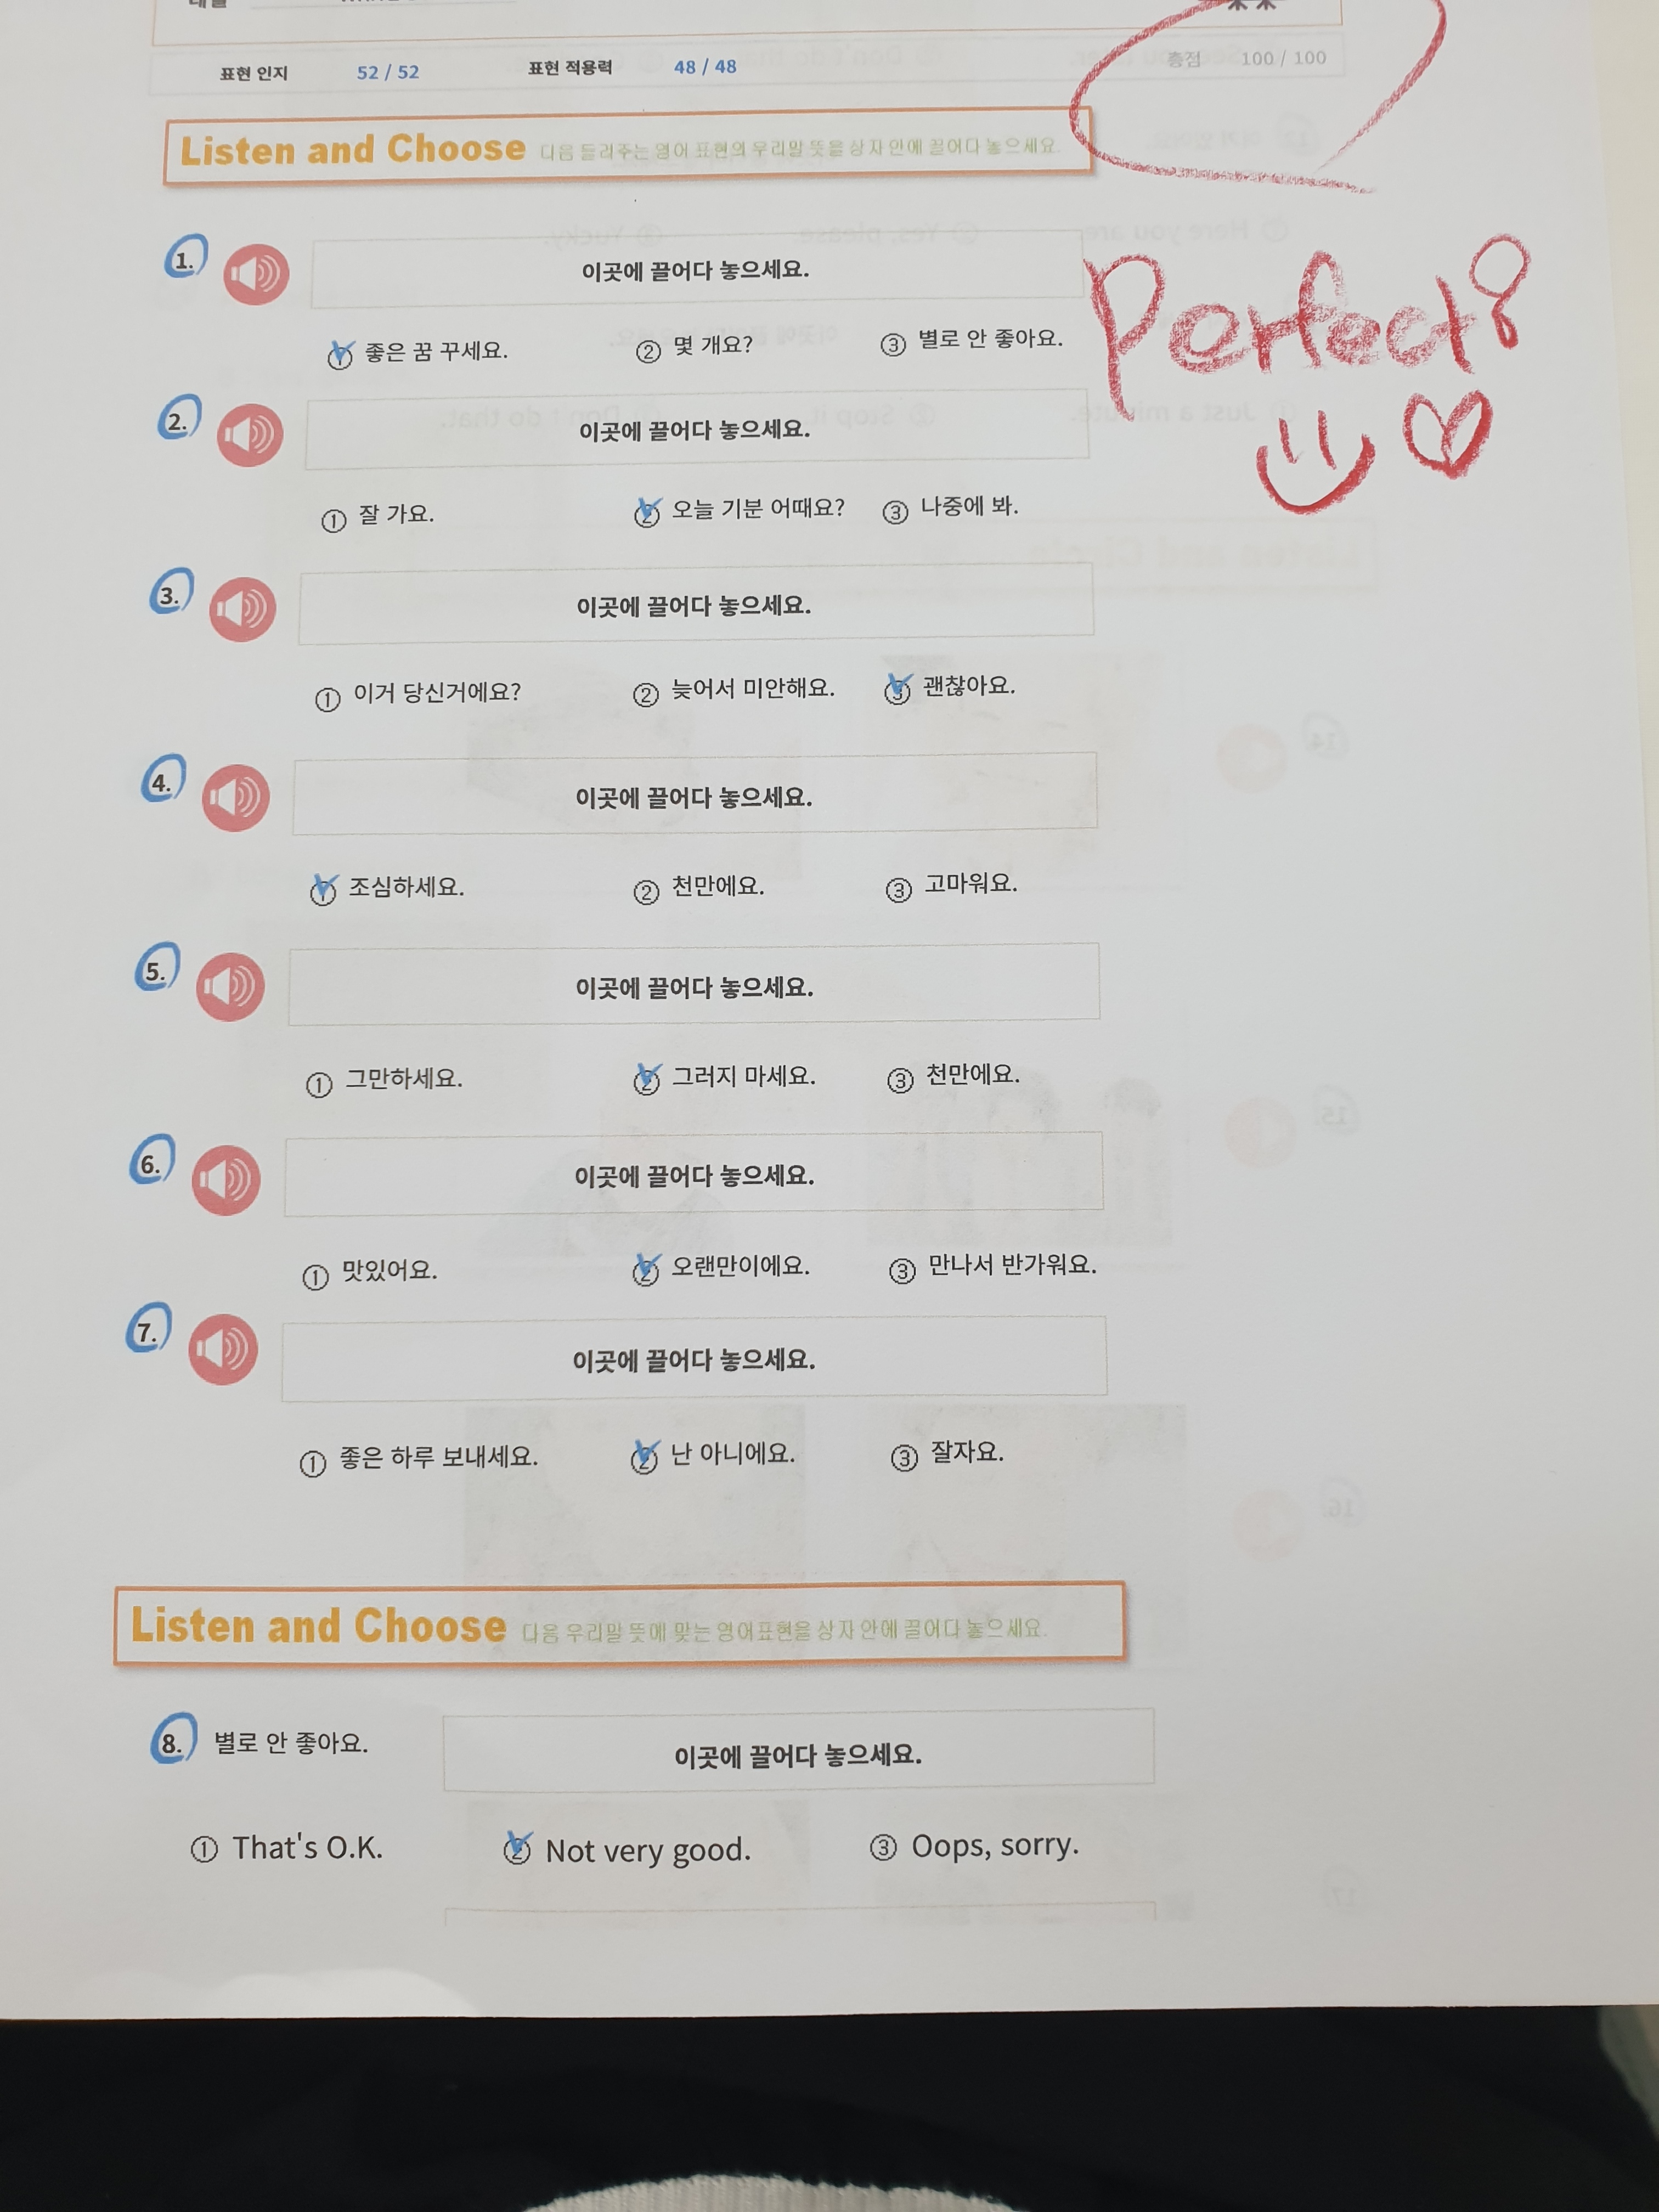 표현 인지 52 / 52 표현 적용력 48 / 48 총점 100 / 100
Listen and Choose 다음 들려주는 영어 표현의 우리말 뜻을 상자 안에 끌어다 놓으세요.
1. 이곳에 끌어다 놓으세요.
Perfect!
① 좋은 꿈 꾸세요. ② 몇 개요? ③ 별로 안 좋아요.
2. 이곳에 끌어다 놓으세요.
① 잘 가요. ② 오늘 기분 어때요? ③ 나중에 봐.
3. 이곳에 끌어다 놓으세요.
① 이거 당신거에요? ② 늦어서 미안해요. ③ 괜찮아요.
4. 이곳에 끌어다 놓으세요.
① 조심하세요. ② 천만에요. ③ 고마워요.
5. 이곳에 끌어다 놓으세요.
① 그만하세요. ② 그러지 마세요. ③ 천만에요.
6. 이곳에 끌어다 놓으세요.
① 맛있어요. ② 오랜만이에요. ③ 만나서 반가워요.
7. 이곳에 끌어다 놓으세요.
① 좋은 하루 보내세요. ② 난 아니에요. ③ 잘자요.
Listen and Choose 다음 우리말 뜻에 맞는 영어표현을 상자 안에 끌어다 놓으세요.
8. 별로 안 좋아요. 이곳에 끌어다 놓으세요.
① That's O.K. ② Not very good. ③ Oops, sorry.